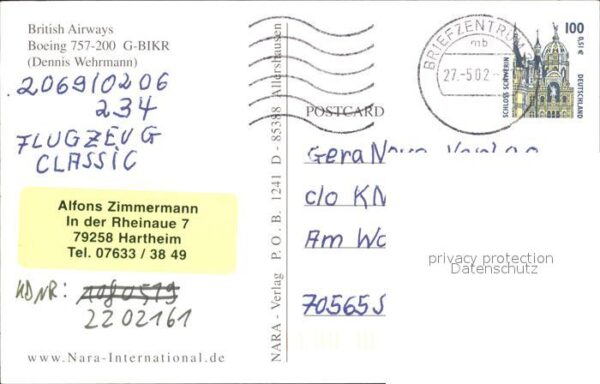 British Airways
Boeing 757-200 G-BIKR
(Dennis Wehrmann)
206910206
234
FLUGZEUG
CLASSIC
Alfons Zimmermann
In der Rheinaue 7
79258 Hartheim
Tel. 07633 / 38 49
KDNR:
2202161
www.Nara-International.de
NARA - Verlag P.O.B. 1241 D - 85388 Allershausen
POSTCARD
BRIEFZENTRUM
mb
27.-5.02.-
100
0,51 €
SCHLOSS SCHWERIN
DEUTSCHLAND
GeraNova
c/o
Am
70565
privacy protection
Datenschutz